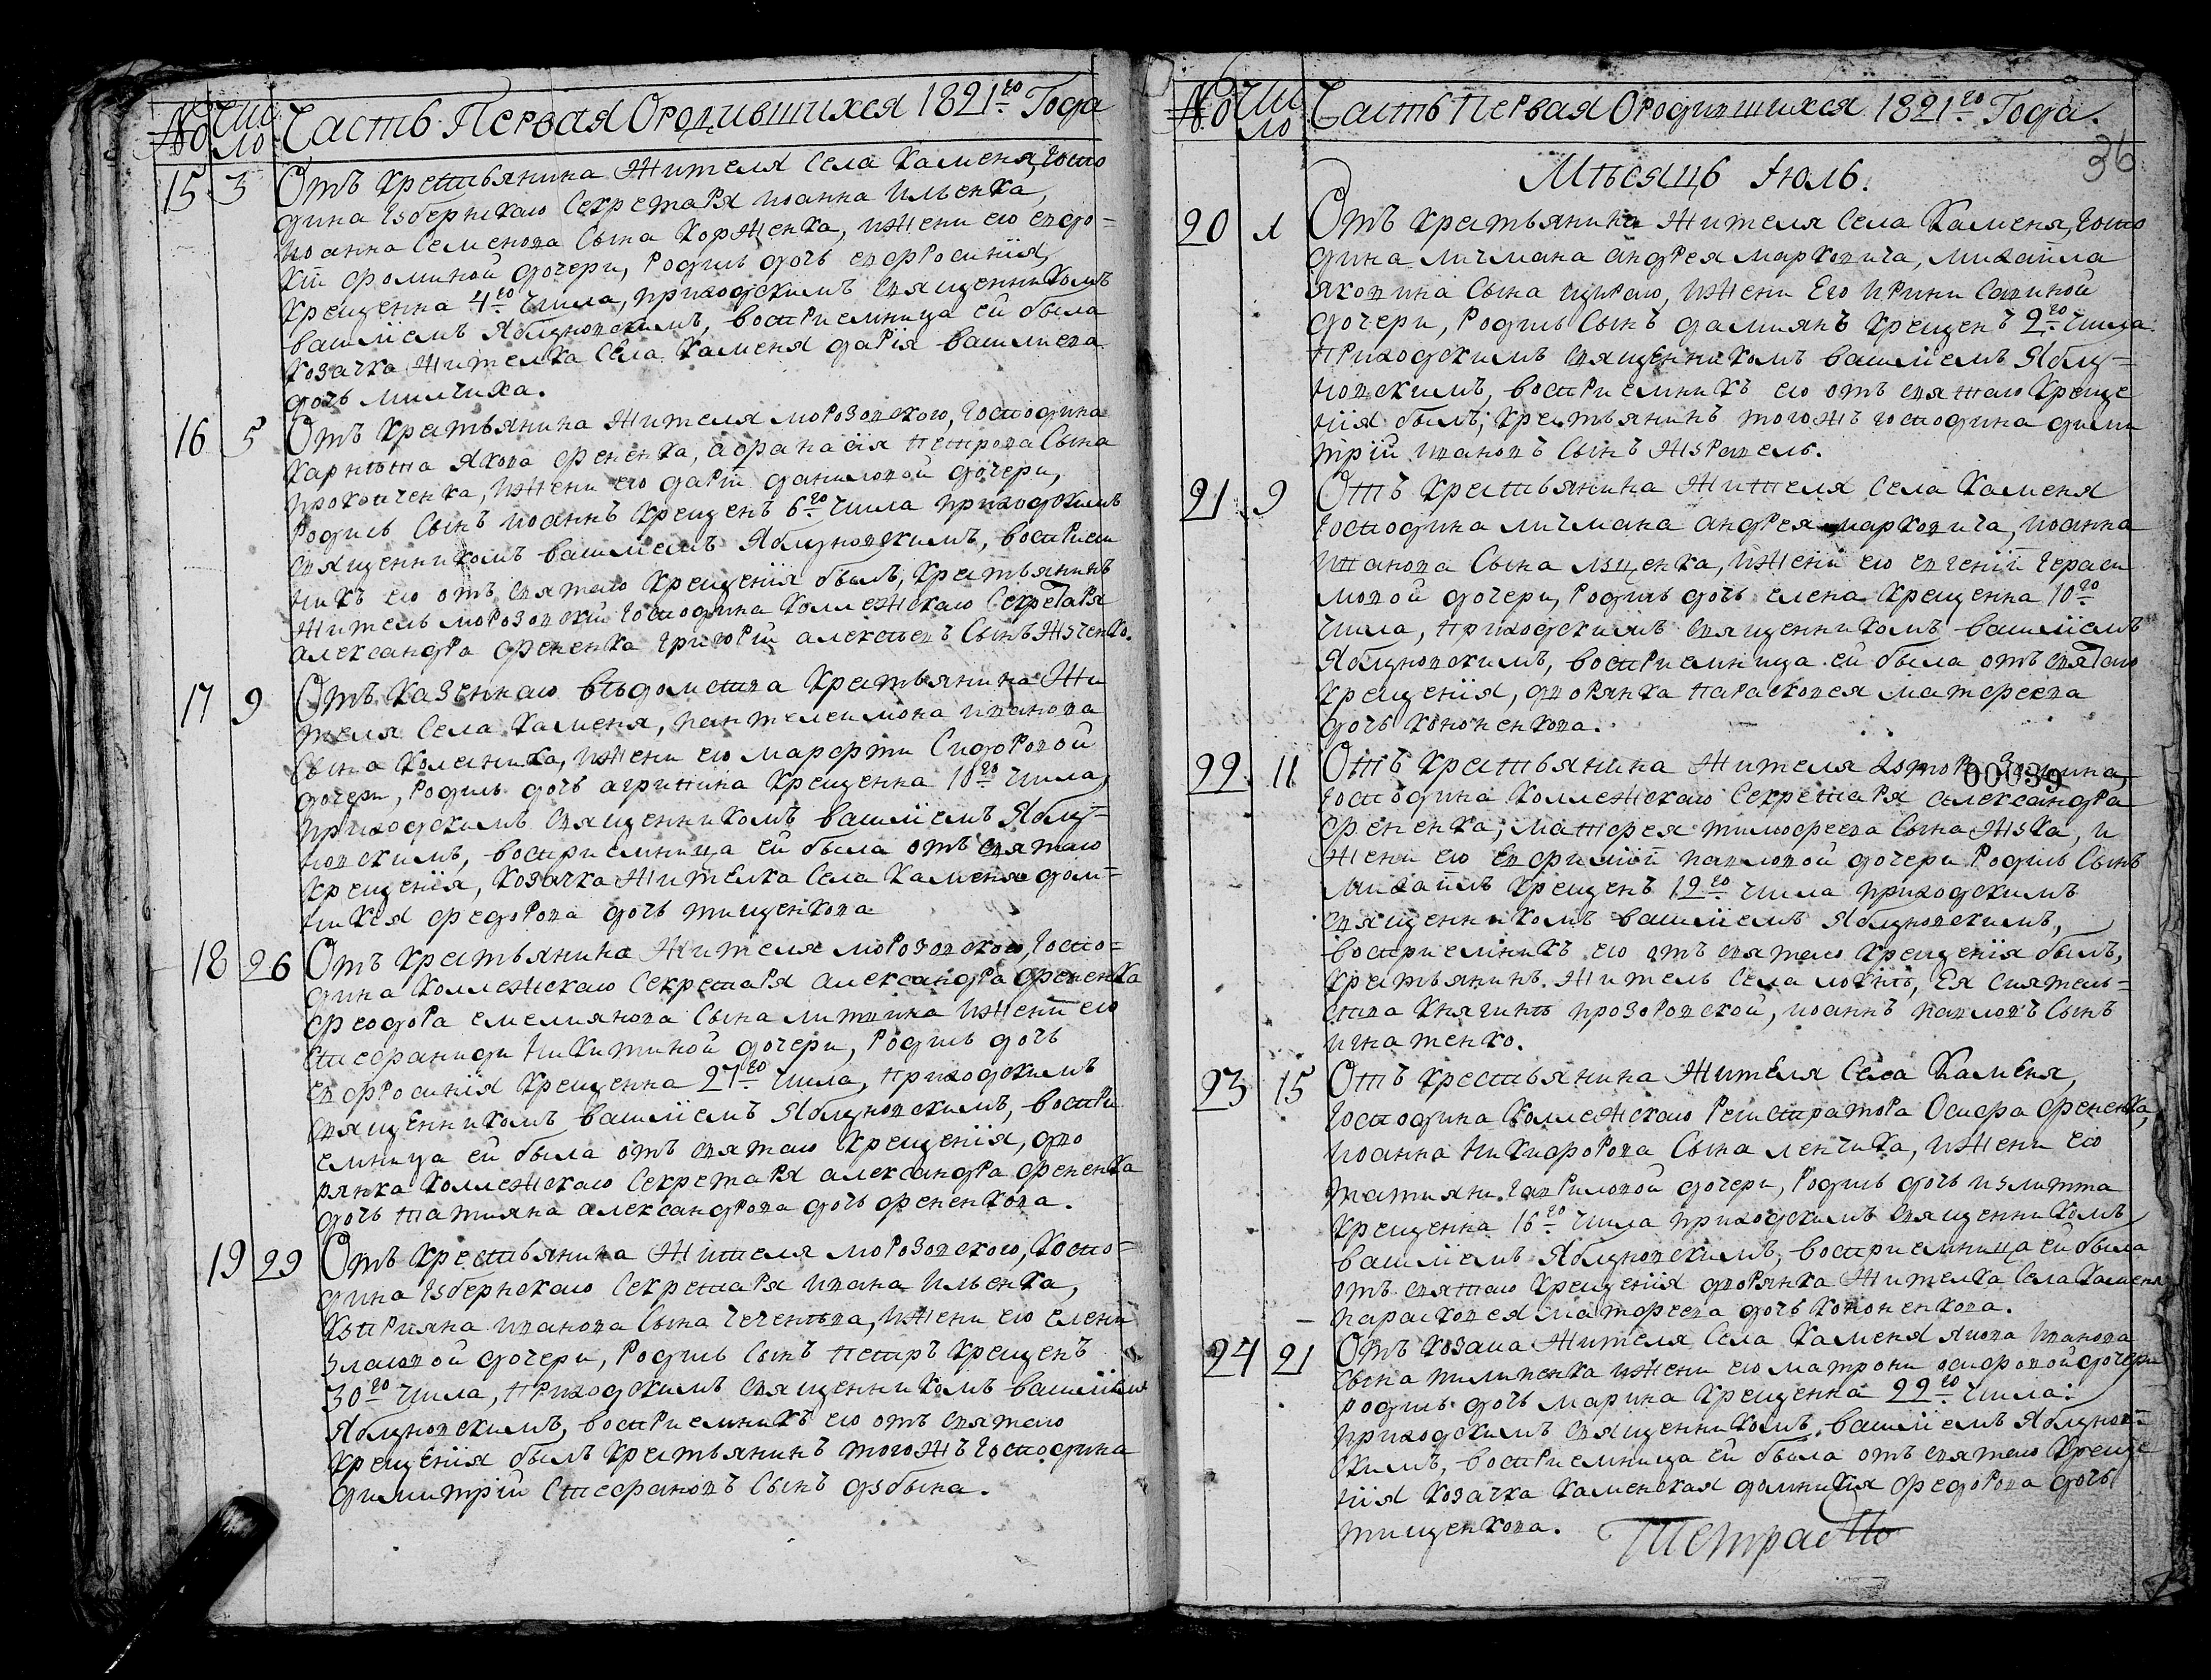 № Число Часть Первая О родившихся 1821го Года
15 3 Отъ крестьянина жителя села Каменя, госпо
дина губернскаго секретаря иоанна ильенка,
иоанна семенова сына корженка, ижени его евдо=
кіи фоминой дочери, родись дочь евфросинія,
крещенна 4го числа, приходскимъ священникомъ
василіемъ Яблуновскимъ, воспріемница ей была
козачка жителка села каменя дарія василиева
дочь
16 5 Отъ крестьянина жителя морозовского, господина
Якова фененка, афанасія петрова сына
прокопченка, ижени его даріи даниловой дочери,
родись сынъ иоаннъ крещенъ 6го числа приходскимъ
священникомъ василіемъ Яблуновскимъ, воспріем
никъ его отъ святаго крещенія былъ, крестьянинъ
житель морозовскій господина коллежскаго секретаря
александра фененка григорій алексѣевъ сынъ
17 9 Отъ казеннаго вѣдомства крестьянина жи
теля села каменя, пантелеимона иванова
сына коленика, ижени его марфти сидоровой
дочери, родись дочь агрипина крещенна 10го числа,
приходскимъ священникомъ василіемъ Яблу=
новскимъ, воспріемница ей была отъ святаго
крещенія, козачка жителка села каменя дом=
никія федорова дочь тищенкова
18 26 Отъ крестьянина жителя морозовского, госпо=
дина коллежскаго секретаря александра фененка
феодора емелиянова сына литвина ижени его
стефаниди никитиной дочери, родись дочь
евфросинія крещенна 27го числа, приходскимъ
священникомъ василіемъ Яблуновскимъ, воспрі
емница ей была отъ святаго крещенія, дво
рянка коллежскаго секретаря александра фененка
дочь татияна александрова дочь фененкова.
19 29 Отъ крестьянина жителя морозовского, госпо=
дина губернскаго секретаря ивана ильенка,
куприяна иванова сына ижени его елени
дочери, родись сынъ петръ крещенъ
30го числа, приходскимъ священникомъ василіемъ
Яблуновскимъ, воспріемникъ его отъ святаго
крещенія былъ крестьянинъ тогожъ господина
димитрій стефановъ сынъ дубына.
№ Число Часть Первая О родившихся 1821го Года.
36
Мѣсяцъ Іюль.
20 1 Отъ крестьянина жителя села Каменя, госпо
дина мичмана андрея марковича, михаила
яковина сына щираго, ижени его ирини савиной
дочери, родись сынъ дамиянъ крещенъ 2го числа
приходскимъ священникомъ василіемъ Яблу=
новскимъ, воспріемникъ его отъ святаго креще
нія былъ, крестьянинъ тогожъ господина дими
трій ивановъ сынъ журавель.
21 9 Отъ крестьянина жителя села Каменя
господина мичмана андрея марковича, иоанна
иванова сына луценка, ижени его евгеніи гераси
мовой дочери, родись дочь елена крещенна 10го
числа, приходскимъ священникомъ василіемъ
Яблуновскимъ, воспріемница ей была отъ святаго
крещенія, дворянка парасковея матфеева
дочь кононенкова.
22 11 Отъ крестьянина жителя
00039
господина коллежскаго секретаря александра
фененка, матфея тимофеева сына жука, и
жени его евфиміи павловой дочери родись сынъ
михаилъ крещенъ 12го числа приходскимъ
священникомъ василіемъ Яблуновскимъ,
воспріемникъ его отъ святаго крещенія былъ,
крестьянинъ житель села локнѣ, Ея сиятель=
ства княгинѣ прозоровской, иоаннъ павловъ сынъ
игнатенко.
23 15 Отъ крестьянина жителя села Каменя,
господина коллежскаго регистратора Осифа фененка,
иоанна никифорова сына ленчика, ижени его
татияни гавриловой дочери, родись дочь иулитта
крещенна 16го числа приходскимъ священникомъ
василіемъ Яблуновскимъ, воспріемница ей была
отъ святаго крещенія дворянка жителка села каменя
парасковея матфеева дочь кононенкова.
24 21 Отъ козака жителя села Каменя якова иванова
сына пилипенка ижени его матрони осифовой дочери
родись дочь марина крещенна 22го числа:
приходскимъ священникомъ василіемъ Яблунов=
скимъ, воспріемница ей была отъ святаго креще
нія козачка каменская домникія федорова дочь
тищенкова.